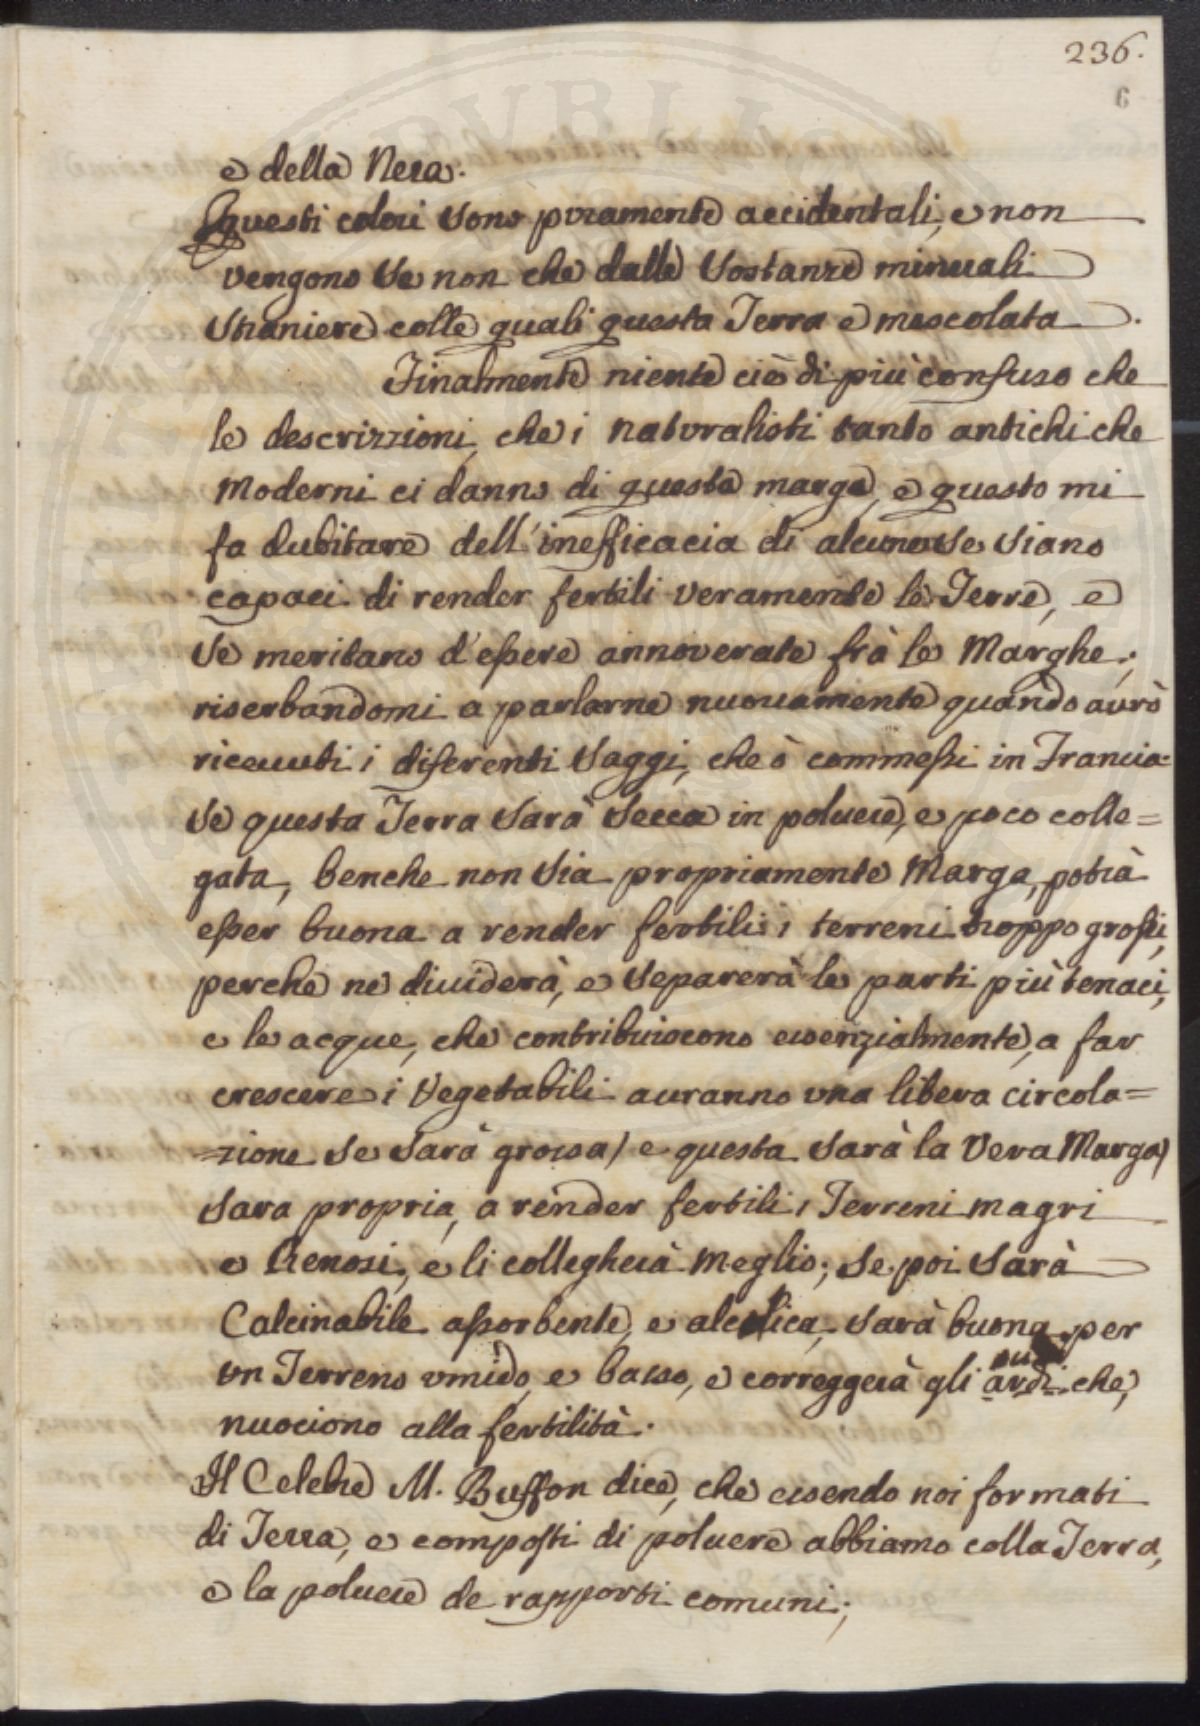 236.
6
e della Nera.
Questi colori sono puramente accidentali, e non
vengono se non che dalle sostanze minerali
straniere colle quali questa Terra e mescolata.
Finalmente niente ciò di più confuso che
le descrizzioni, che i naturalisti tanto antichi che
moderni ci danno di questa marga, e questo mi
fa dubitare dell'inefficacia di alcuno se siano
capaci di render fertili veramente le Terre, e
se meritano d'essere annoverate frà le Marghe;
riserbandomi a parlarne nuovamente quando avrò
riceuuti i diferenti saggi, che ò commessi in Francia.
Se questa Terra sarà secca in poluere, e poco colle=
gata, benche non sia propriamente Marga, potrà
esser buona a render fertili i terreni troppo grossi,
perche ne diuiderà, e separerà le parti più tenaci,
e le acque, che contribuiscono essenzialmente, a far
crescere i Vegetabili auranno una libera circola=
=zione se sarà grossa / e questa sarà la Vera Marga /
sara propria, a render fertili i Terreni magri
e Renosi, e li collegherà meglio; se poi sarà
Calcinabile assorbente, e alcalica, sarà buona per
un Terreno umido, e basso, e correggerà gli acidi che,
nuociono alla fertilità.
Il Celebre M. Buffon dice, che essendo noi formati
di Terra, e composti di poluere abbiamo colla Terra,
e la poluere de rapporti comuni;